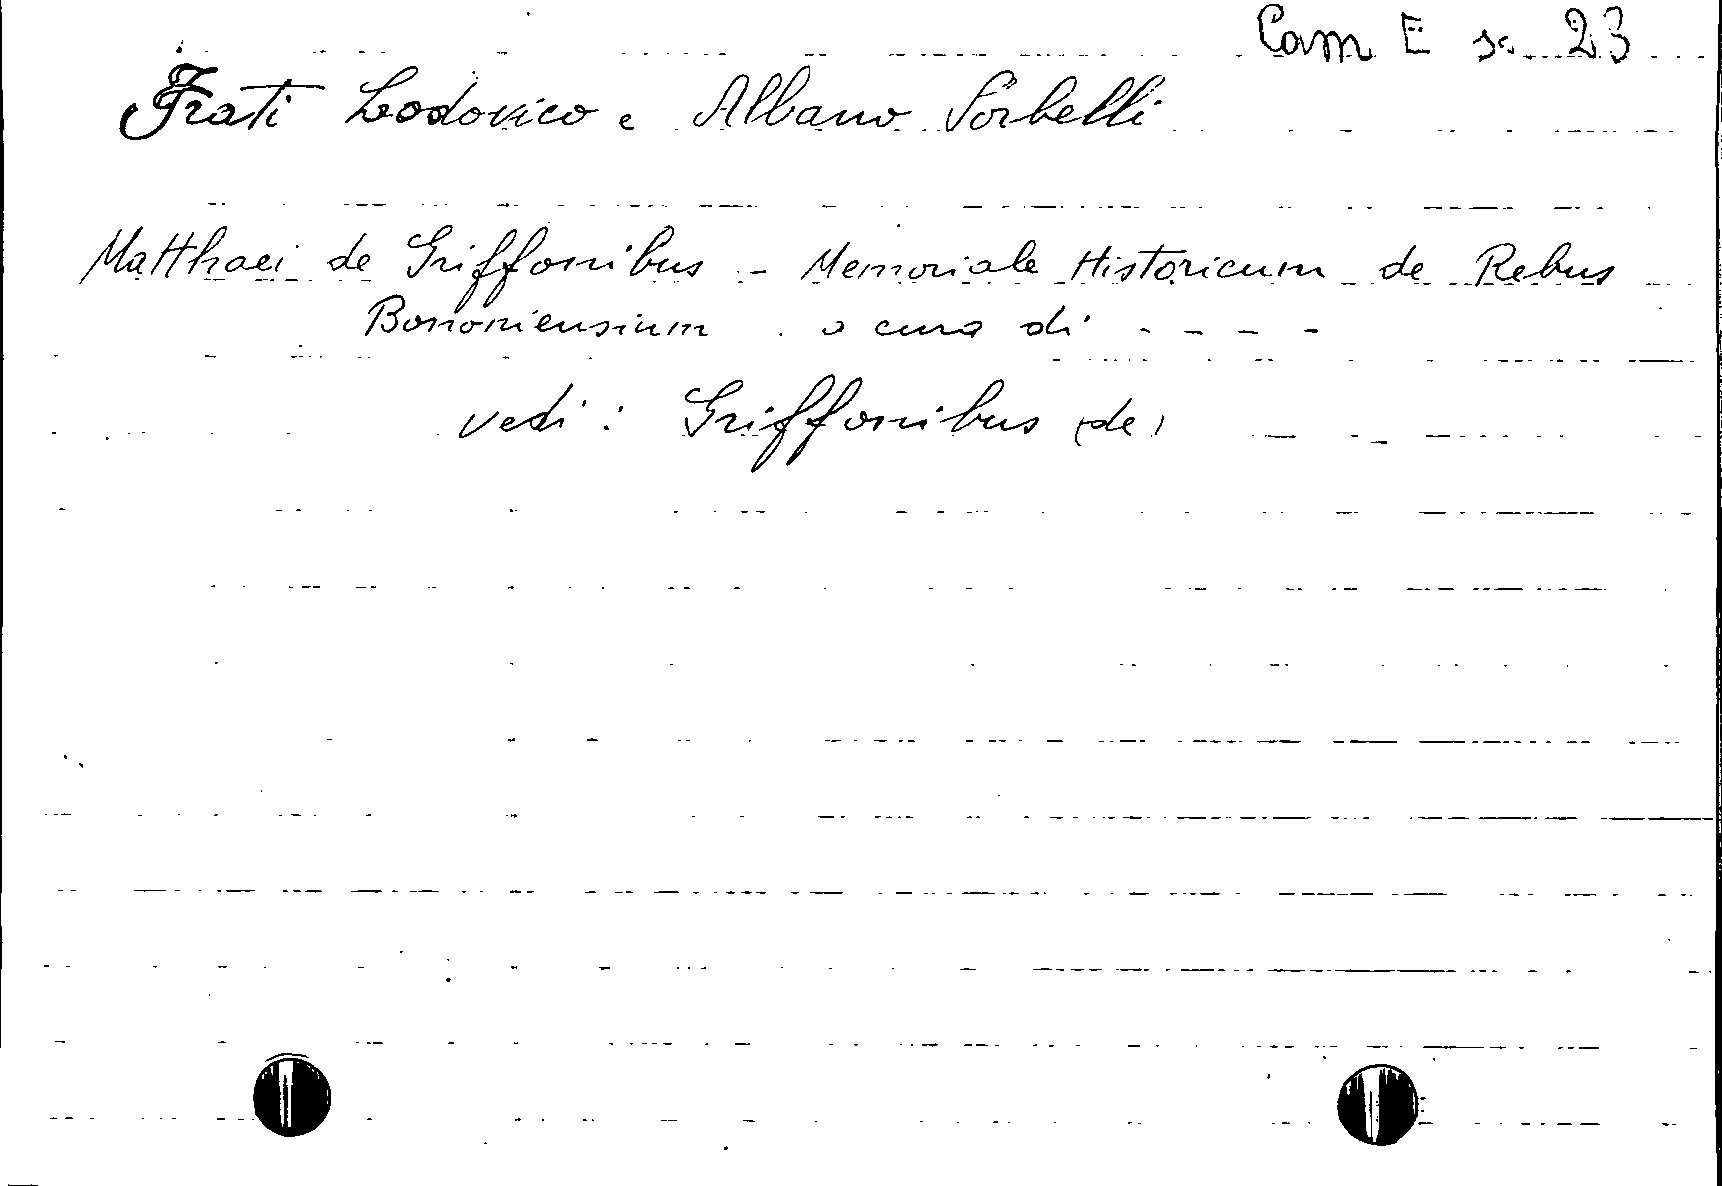 Cam E sc. 23
Frati Lodovico e Albano Sorbelli
Matthaei de Griffonibus - Memoriale Historicum de Rebus
Bononiensium . a cura di - - - -
vedi : Griffonibus (de)